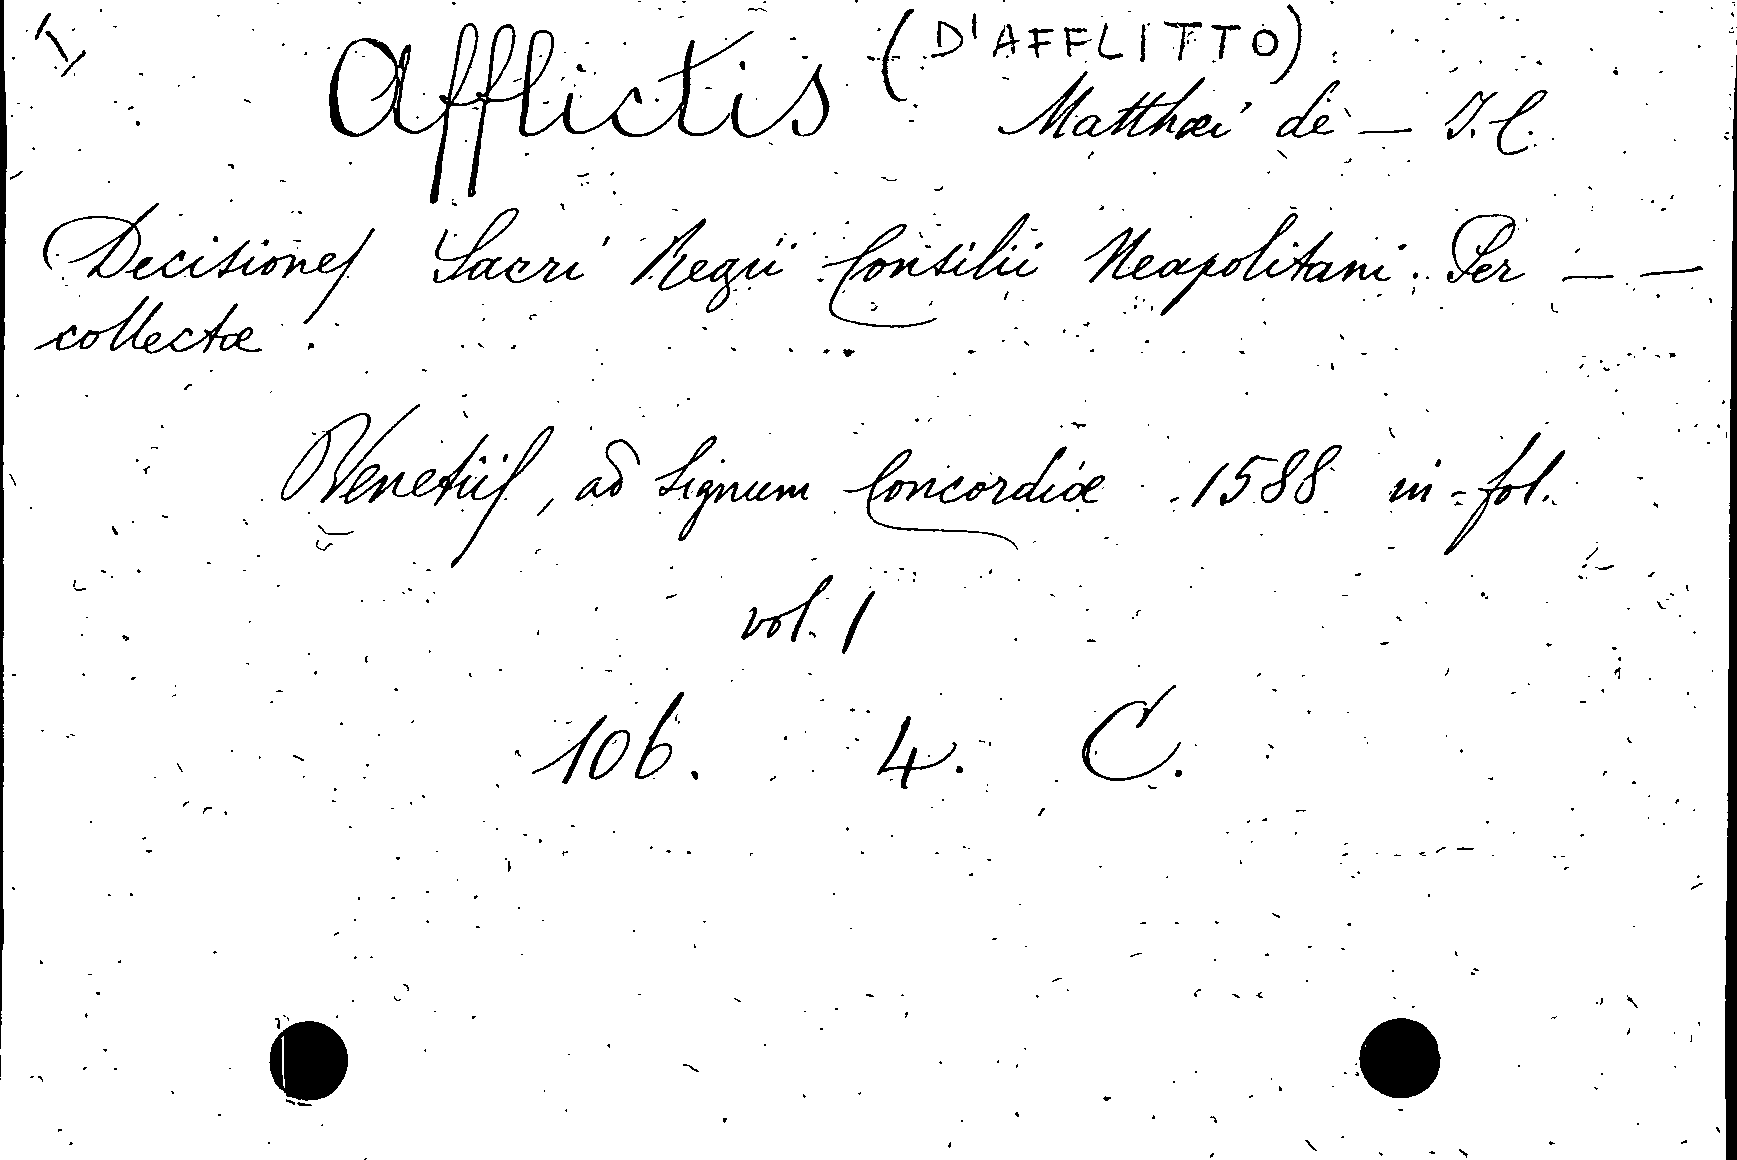 Afflictis (D'AFFLITTO)
Matthæi de — J. C.
Decisiones Sacri Regii Consilii Neapolitani. Per — —
collectæ.
Venetiis, ad signum Concordiæ 1588 in=fol.
vol. 1
106. 4. C.